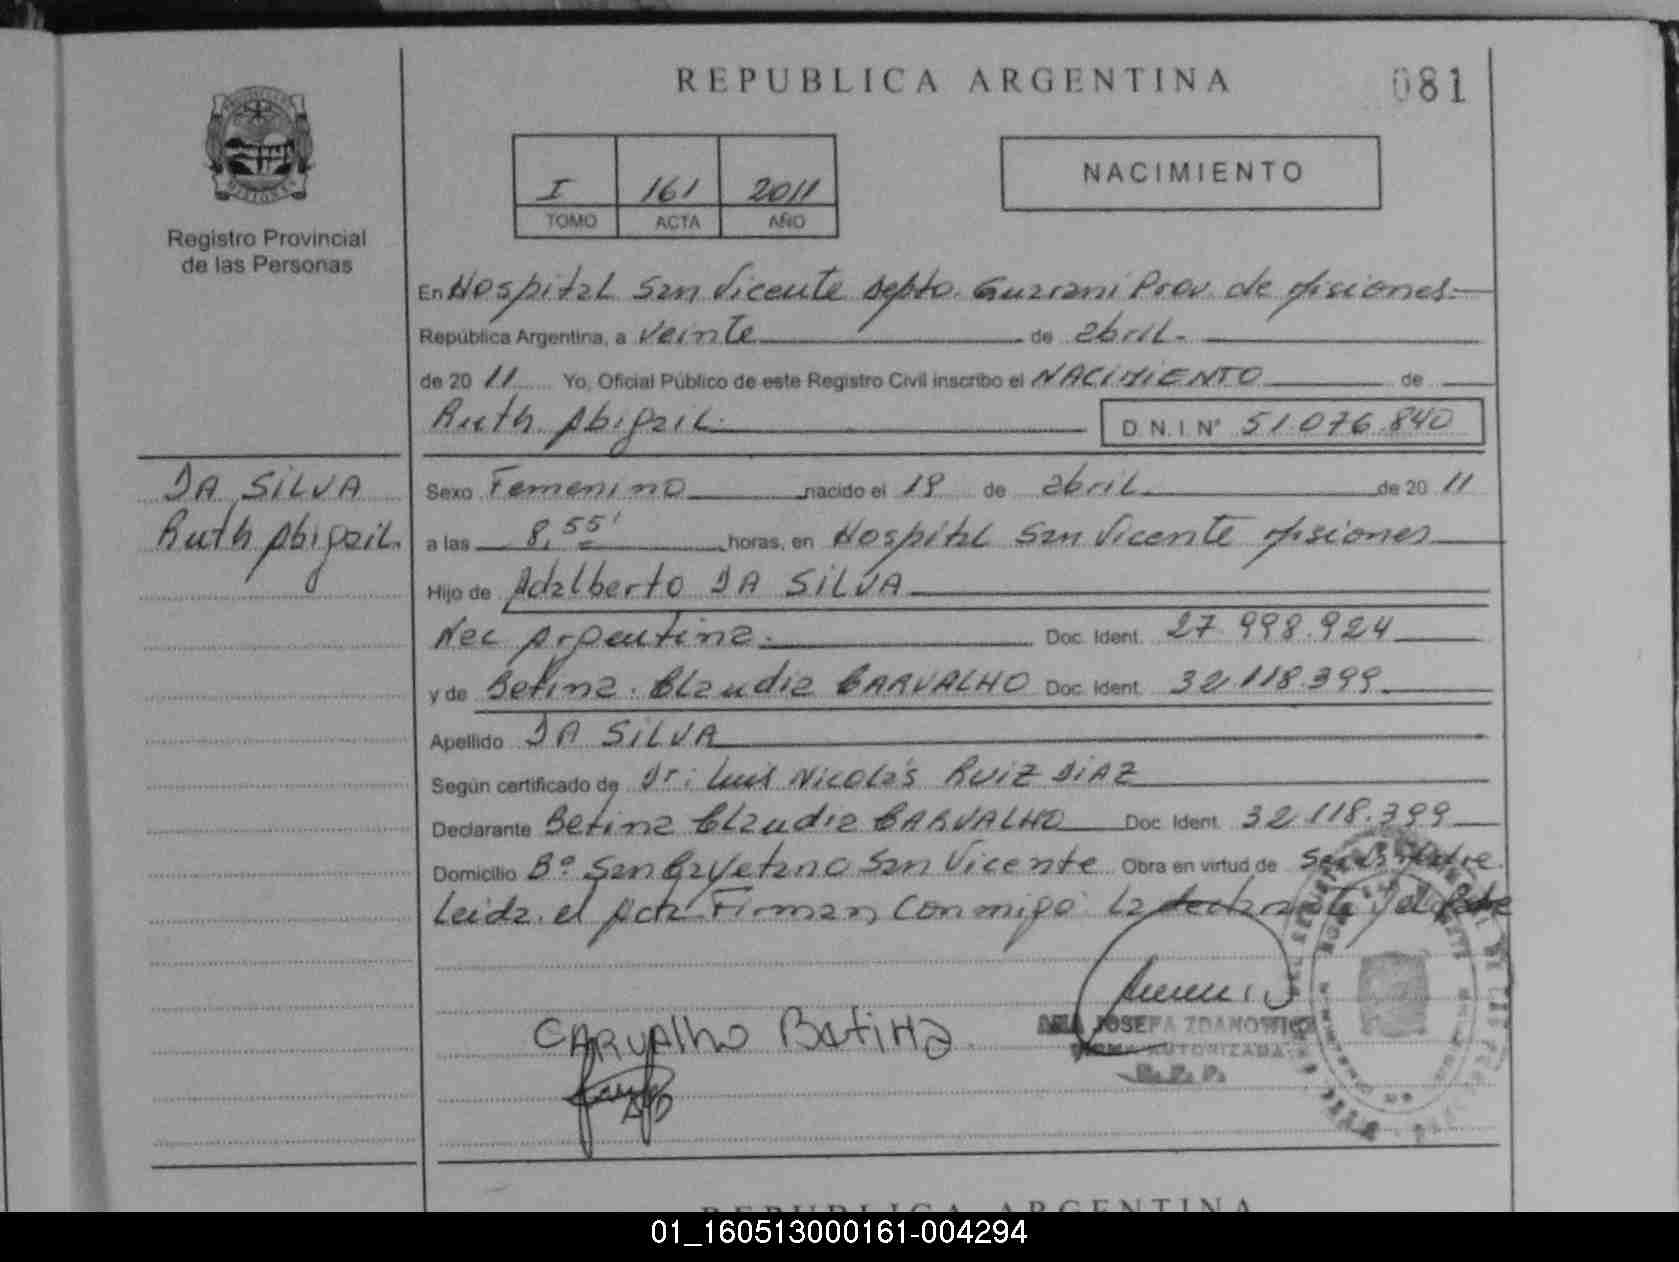 REPUBLICA ARGENTINA
081
I 161 2011
TOMO ACTA AÑO
NACIMIENTO
Registro Provincial
de las Personas
En Hospital San Vicente Depto. Guarani Prov. de Misiones.
República Argentina, a veinte de abril.
de 20 11 Yo, Oficial Público de este Registro Civil inscribo el NACIMIENTO de
Ruth Abigail. D.N.I. Nº 51.076.840
DA SILVA
Ruth Abigail.
Sexo Femenino nacido el 19 de abril de 20 11
a las 8,55' horas, en Hospital San Vicente Misiones
Hijo de Adalberto DA SILVA
Nac Argentina. Doc. Ident. 27.998.924
y de Betina. Claudia CARVALHO Doc. Ident. 32.118.399
Apellido DA SILVA
Según certificado de Dr: Luis Nicolás RUIZ DIAZ
Declarante Betina Claudia CARVALHO Doc. Ident. 32.118.399
Domicilio Bº San Cayetano San Vicente Obra en virtud de ser la madre.
Leida el Acta Firman, conmigo la declarante y el Padre
CARVAlho BetiNa
JOSEFA ZDANOWICZ
FIRMA AUTORIZADA
R.P.P.
REPUBLICA ARGENTINA
01_160513000161-004294